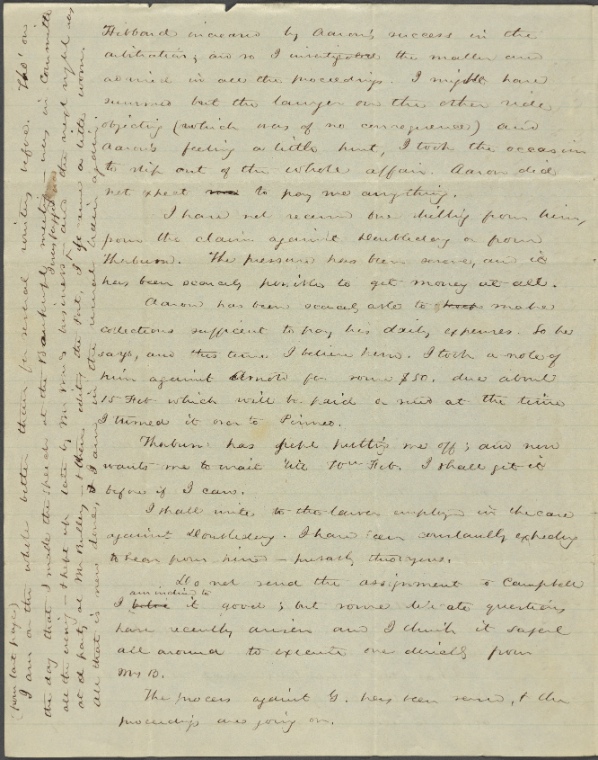 Hibbard incurred by Aaron's success in the
arbitration; and so I investigated the matter and
advised in all the proceedings. I might have
summed but the lawyer on the other side
objecting (which was of no consequence) and
Aaron's feeling a little hurt, I took the occasion
to slip out of the whole affair. Aaron did
not expect to pay me anything.
I have not received one shilling from him,
from the claim against Doubleday or from
Thorburn. The pressure has been severe, and it
has been scarcely possible to get money at all.
Aaron has been scarcely able to make
collections sufficent to pay his daily expenses. So he
says, and this time I believe him. I took a note of
him against Arnold for some $50. due about
15 Feb which will be paid or sued at the time
I turned it over to Pinneo.
Thorburn has kept putting me off; and now
wants me to wait 'till 10th Feb. I shall get it
before if I can.
I shall write to the lawyer employed in the case
against Doubleday. I have been constantly expecting
to hear from him
Do not send the assignment to Campbell
I am inclined to believe it good; but some delicate questions
have recently arisen and I think it safest
all around to execute one directly from
Mr B.
The process against G. has been served, & the
proceedings are going on.
(from last page)
I am on the whole better than for several writing before. Tho' on
the day that I made the speech at the Bankrupt meeting was in Committee
all the evening & kept up late by Mr business and the next night was
at a party at Mr & then editing the Post, I feel a little worn.
all that is now done, & I am in the usual train again.